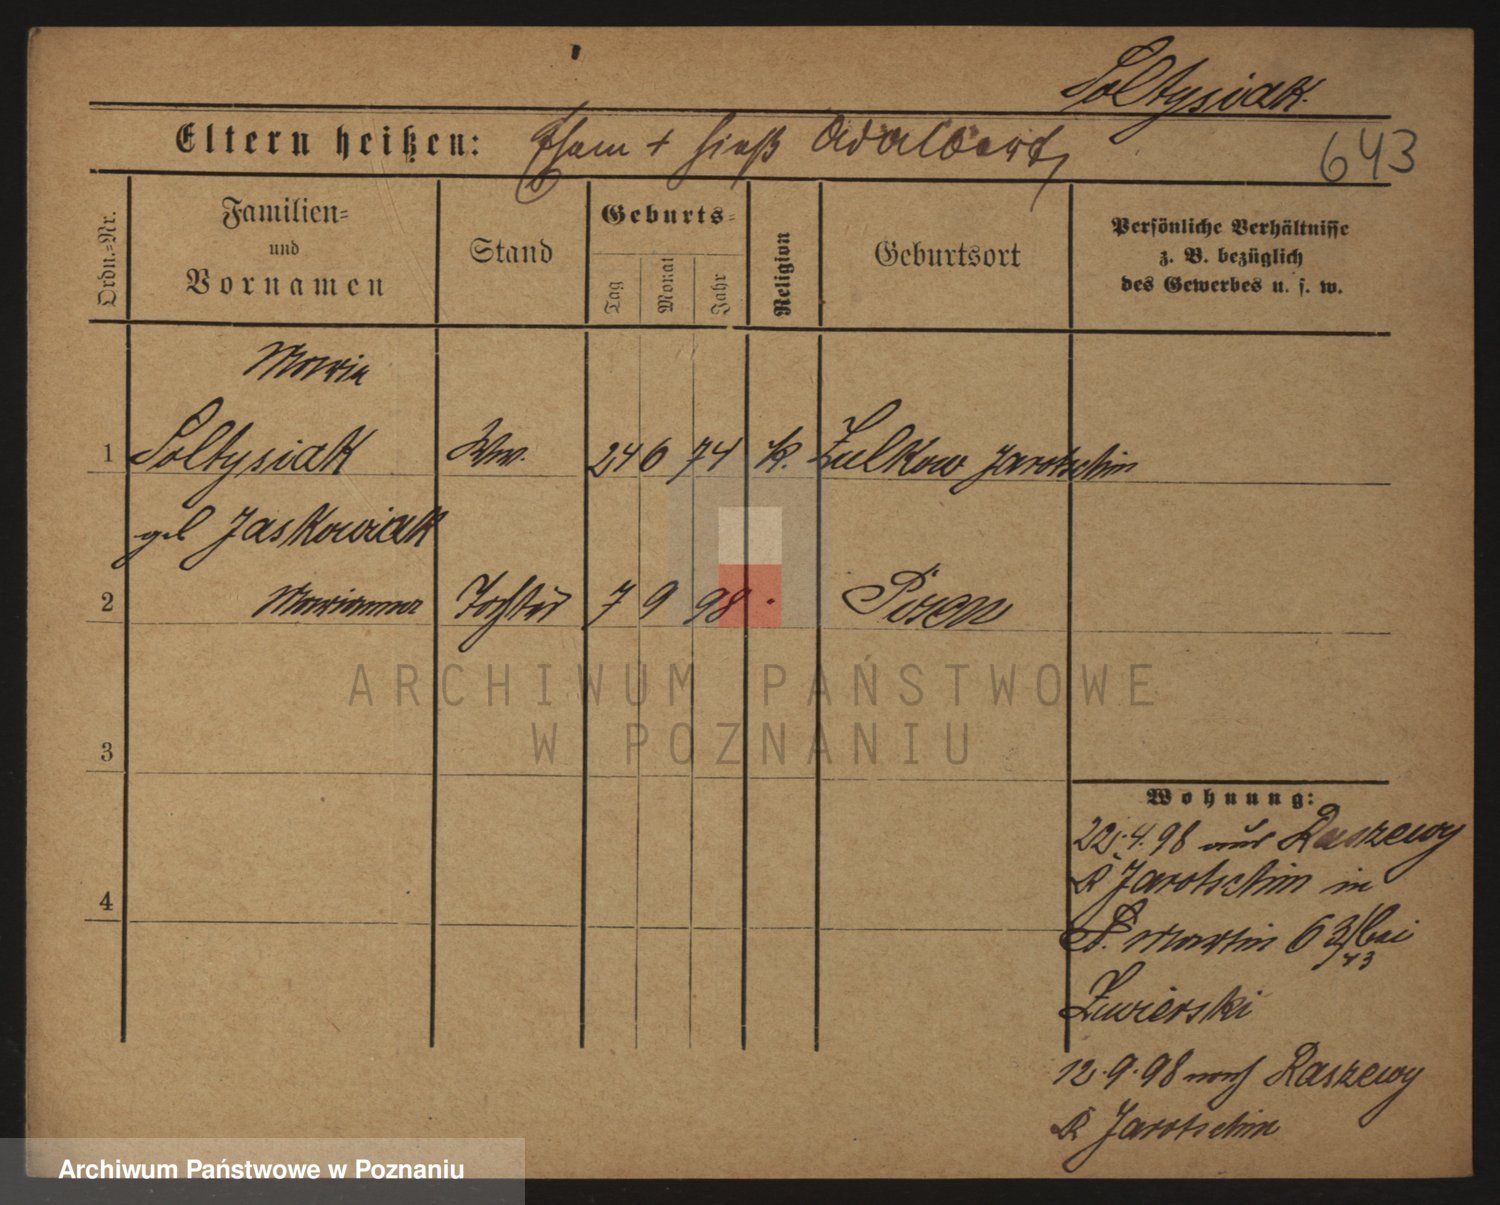 Soltysiak.
Eltern heißen: Eham + hieß Adalbert
643
Ordn.-Nr.
Familien-
und
Vornamen
Stand
Geburts-
Tag
Monat
Jahr
Religion
Geburtsort
Persönliche Verhältnisse
z. B. bezüglich
des Gewerbes u. s. w.
Maria
1 Soltysiak Ww. 24 6 74 k. Zulkow Jarotschin
geb Jaskowiak
2 Marianna Tochter 7 9 98 Posen
ARCHIWUM PAŃSTWOWE
W POZNANIU
3
Wohnung:
22.4.98 aus Raszewy
K Jarotschin in
4
St. Martin 63 bei
43
Zwierski
12.9.98 nach Raszewy
K Jarotschin
Archiwum Państwowe w Poznaniu